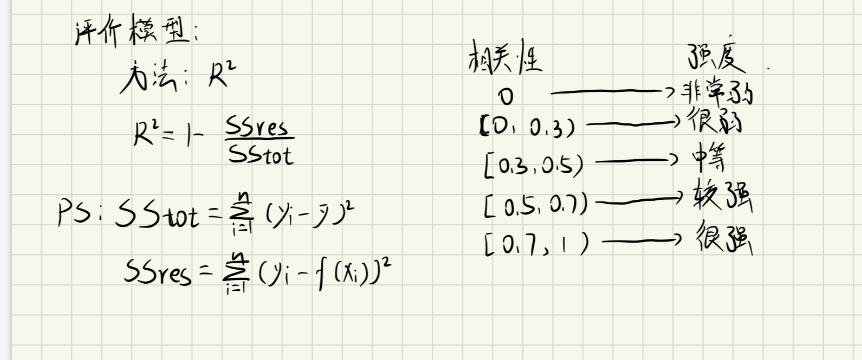 评价模型:
方法: R²
R² = 1 - SSres/SStot
PS: SStot = Σⁿᵢ₌₁ (yᵢ - ȳ)²
SSres = Σⁿᵢ₌₁ (yᵢ - f(xᵢ))²
相关性 强度
0 → 非常弱
[0, 0.3) → 很弱
[0.3, 0.5) → 中等
[0.5, 0.7) → 较强
[0.7, 1) → 很强